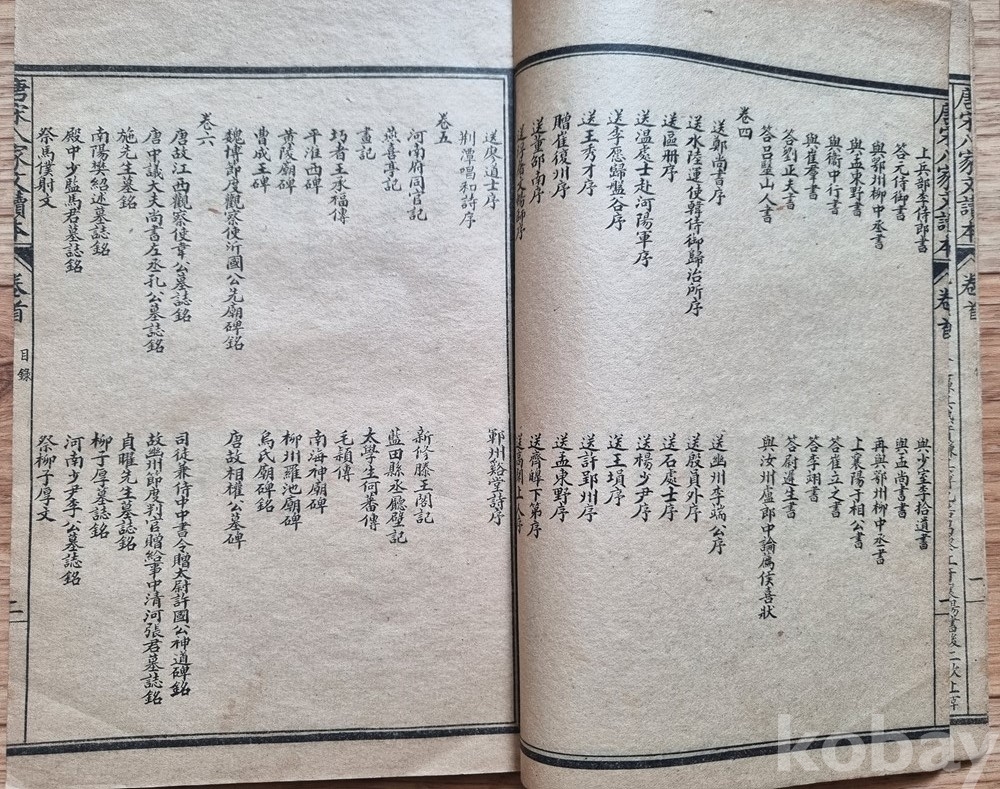 唐宋八家文讀本 卷首
上兵部李侍郎書 與少室李拾遺書
答元侍御書 與孟尚書書
與鄂州柳中丞書 再與鄂州柳中丞書
與孟東野書 上襄陽于相公書
與衞中行書 答崔立之書
與崔羣書 答李翊書
答劉正夫書 答尉遲生書
答呂毉山人書 與汝州盧郎中論薦侯喜狀
卷四
送鄭尚書序 送幽州李端公序
送水陸運使韓侍御歸治所序 送殷員外序
送區册序 送石處士序
送溫處士赴河陽軍序 送楊少尹序
送李愿歸盤谷序 送王塤序
送王秀才序 送許郢州序
贈崔復州序 送孟東野序
送董邵南序 送齊暤下第序
送浮屠文暢師序 送高閑上人序
送廖道士序 鄆州谿堂詩序
荆潭唱和詩序
卷五
河南府同官記 新修滕王閣記
燕喜亭記 藍田縣丞廳壁記
畫記 太學生何蕃傳
圬者王承福傳 毛穎傳
平淮西碑 南海神廟碑
黃陵廟碑 柳州羅池廟碑
曹成王碑 烏氏廟碑銘
魏博節度觀察使沂國公先廟碑銘 唐故相權公墓碑
卷六
唐故江西觀察使韋公墓誌銘 司徒兼侍中中書令贈太尉許國公神道碑銘
唐中議大夫尚書左丞孔公墓誌銘 故幽州節度判官贈給事中清河張君墓誌銘
施先生墓銘 貞曜先生墓誌銘
南陽樊紹述墓誌銘 柳子厚墓誌銘
殿中少監馬君墓誌銘 河南少尹李公墓誌銘
祭馬僕射文 祭柳子厚文
唐宋八家文讀本 卷首 目錄 二
kobay